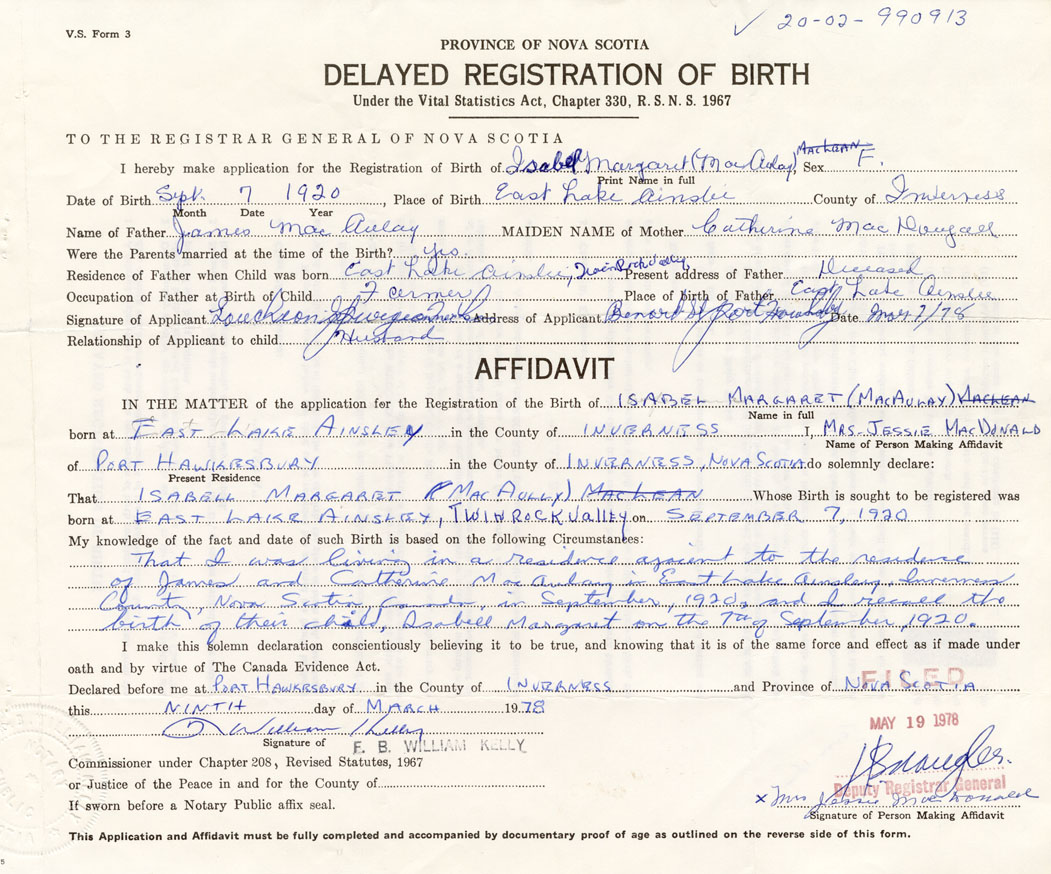 20-02-990913
V.S. Form 3
PROVINCE OF NOVA SCOTIA
DELAYED REGISTRATION OF BIRTH
Under the Vital Statistics Act, Chapter 330, R.S.N.S. 1967
TO THE REGISTRAR GENERAL OF NOVA SCOTIA
I hereby make application for the Registration of Birth of Isabel Margaret (MacAulay) MACLEAN Sex F.
Print Name in full
Date of Birth Sept. 7 1920, Place of Birth East Lake Ainslie County of Inverness
Month Date Year
Name of Father James MacAulay MAIDEN NAME of Mother Catherine MacDougall
Were the Parents married at the time of the Birth? yes.
Residence of Father when Child was born East Lake Ainslie, Twin Rock Valley Present address of Father Deceased
Occupation of Father at Birth of Child Farmer Place of Birth of Father East Lake Ainslie
Signature of Applicant Address of Applicant Port Date Mar 7/78
Relationship of Applicant to child Husband
AFFIDAVIT
IN THE MATTER of the application for the Registration of the Birth of ISABEL MARGARET (MACAULAY) MACLEAN
Name in full
born at EAST LAKE AINSLEY in the County of INVERNESS I, MRS. JESSIE MACDONALD
Name of Person Making Affidavit
of PORT HAWKESBURY in the County of INVERNESS, NOVA SCOTIA do solemnly declare:
Present Residence
That ISABELL MARGARET (MACAULLY) MACLEAN Whose Birth is sought to be registered was
born at EAST LAKE AINSLEY, TWIN ROCK Valley on SEPTEMBER 7, 1920
My knowledge of the fact and date of such Birth is based on the following Circumstances:
That I was living in a residence ajacint to the residence
of James and Catherine MacAulay in East Lake Ainsley, Inverness
County, Nova Scotia Canada, in September, 1920, and I recall the
birth of their child, Isabell Margaret on the 7th of September, 1920.
I make this solemn declaration conscientiously believing it to be true, and knowing that it is of the same force and effect as if made under
oath and by virtue of The Canada Evidence Act.
Declared before me at PORT HAWKESBURY in the County of INVERNESS and Province of NOVA SCOTIA
FILED
this NINTH day of MARCH 1978
MAY 19 1978
William Kelly
Signature of E. B. WILLIAM KELLY
Commissioner under Chapter 208, Revised Statutes, 1967
or Justice of the Peace in and for the County of
Deputy Registrar General
If sworn before a Notary Public affix seal.
x Mrs Jessie MacDonald
Signature of Person Making Affidavit
This Application and Affidavit must be fully completed and accompanied by documentary proof of age as outlined on the reverse side of this form.